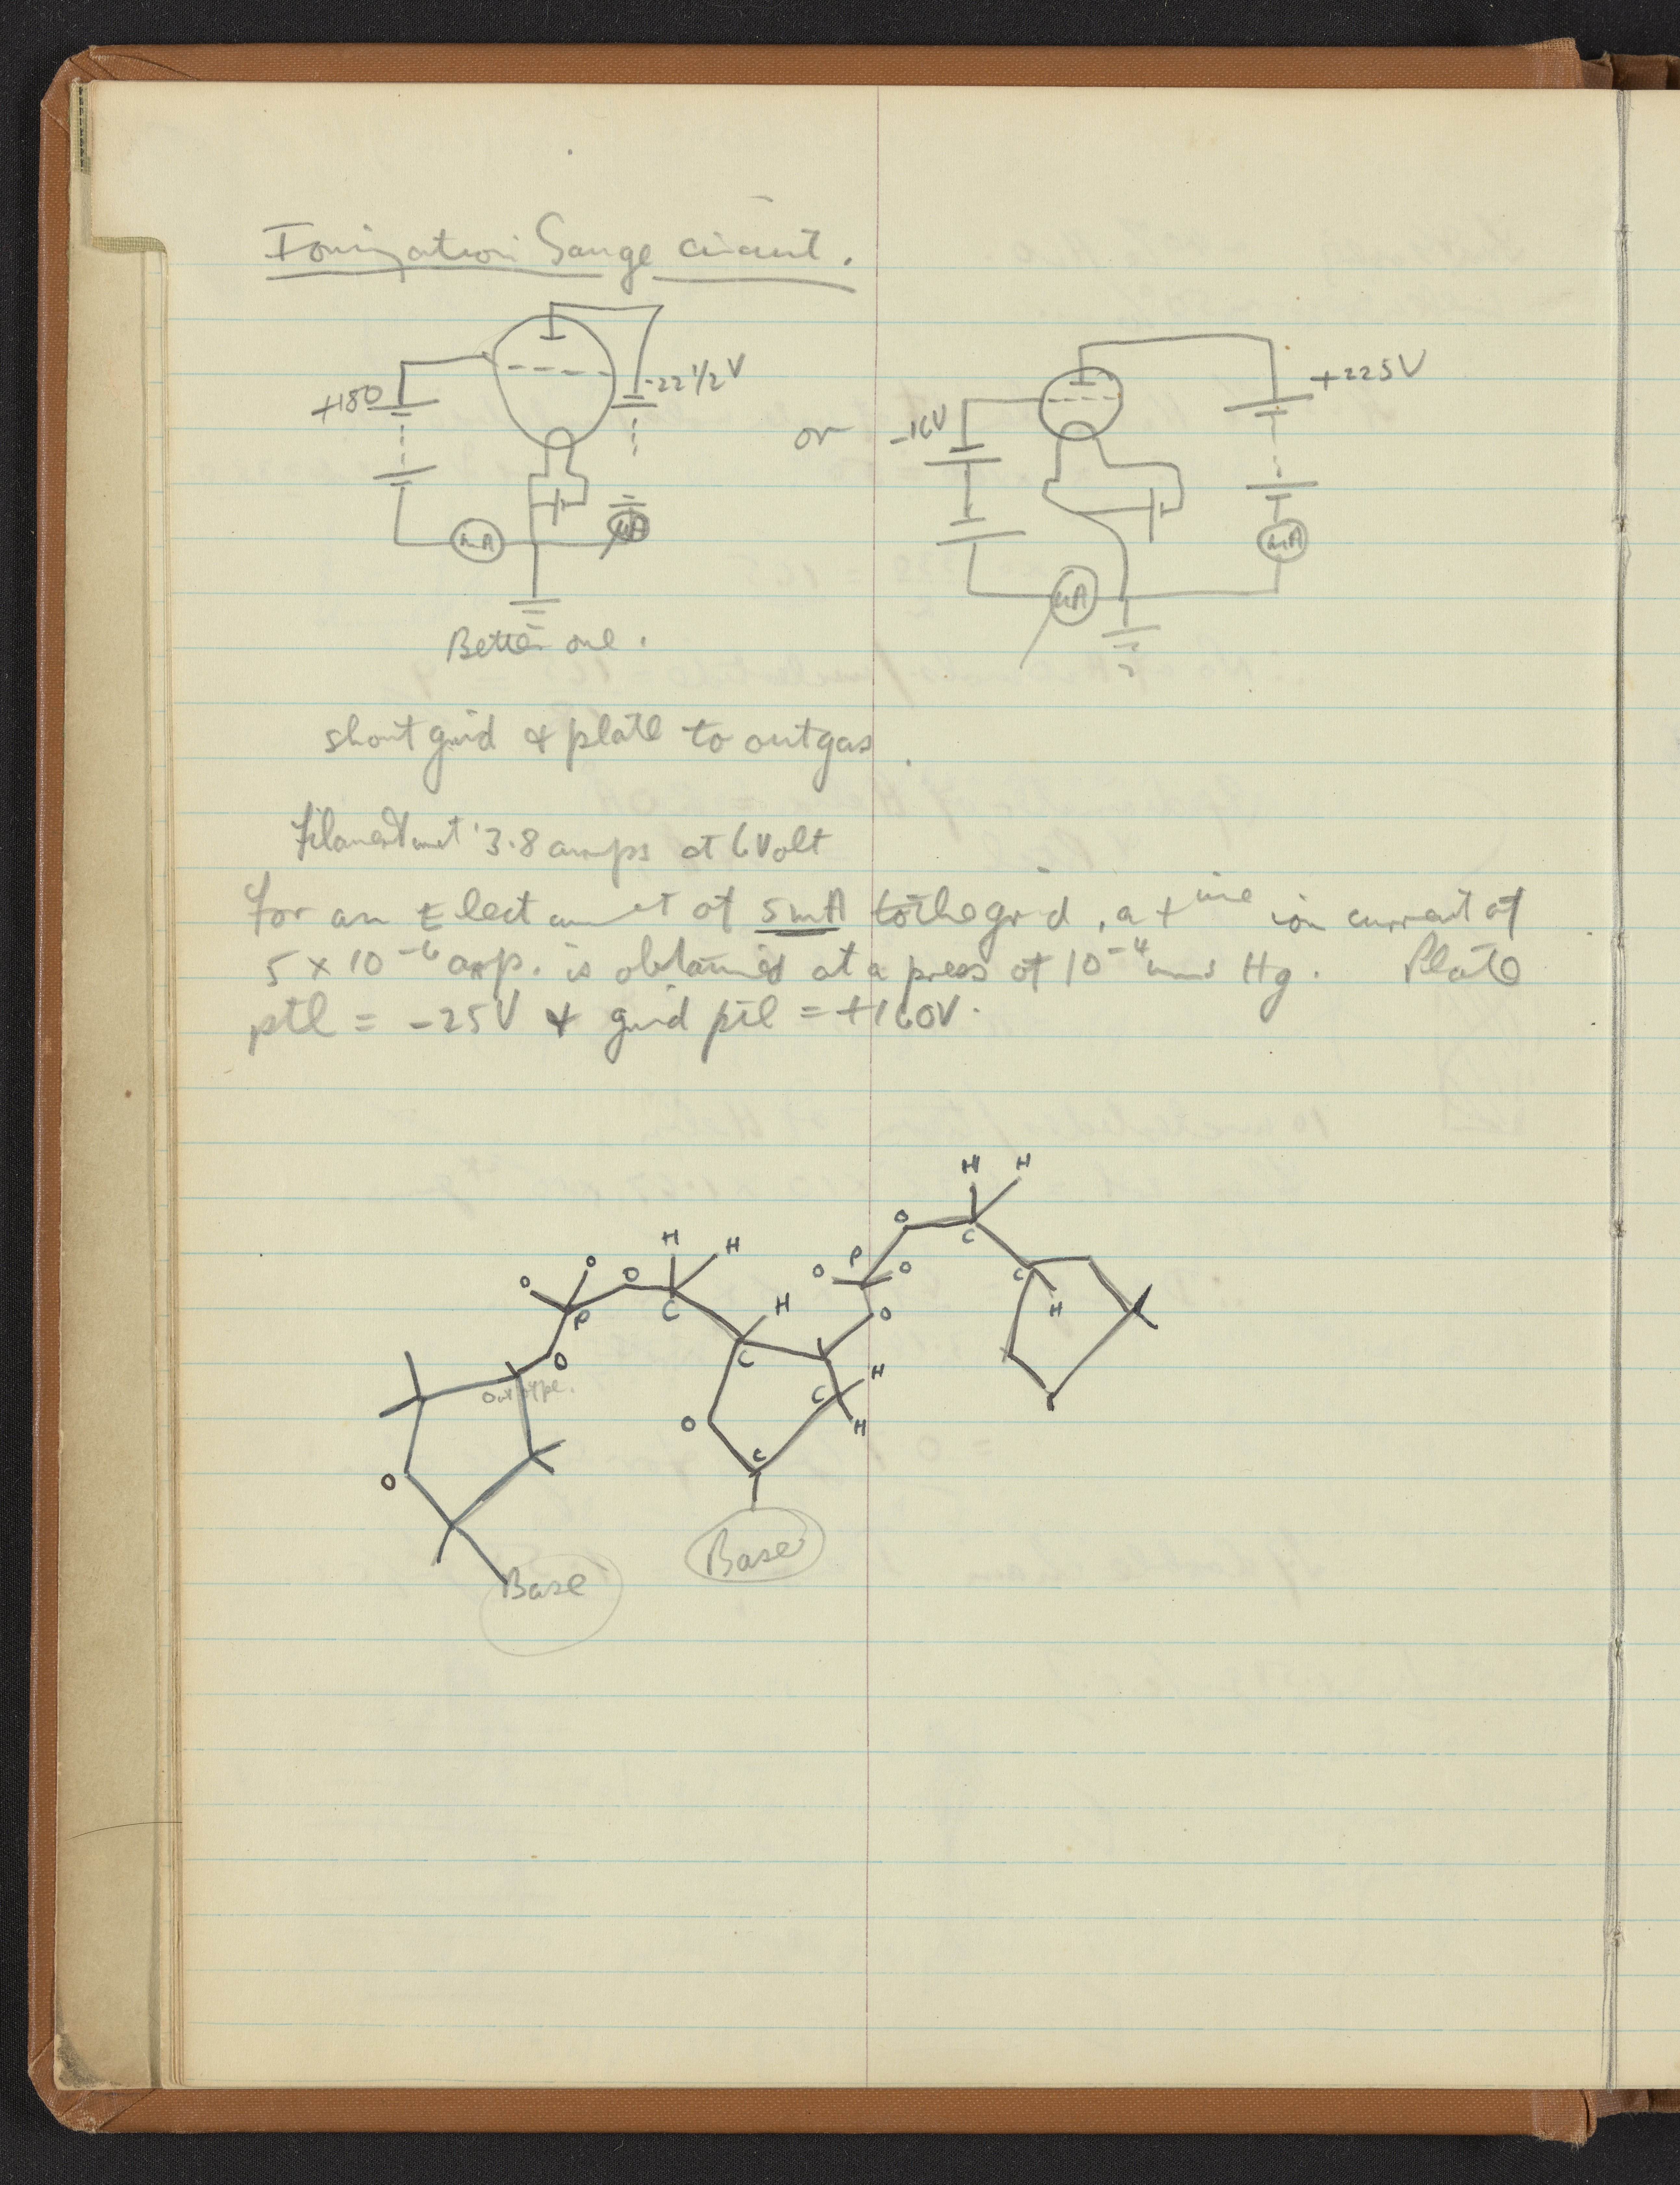 Ionization Gauge circuit.
+180
-22 1/2 V
mA
μA
Better one.
or
-16V
+225V
μA
mA
short grid & plate to outgas.
Filament 3.8 amps at 6 Volt
For an Elect current of 5mA to the grid, a +ive ion current of
5 × 10⁻⁶ amp. is obtained at a press of 10⁻⁴ mms Hg. Plate
ptl = -25V & grid ptl = +160V.
H H
O C
P
O O
C
H
O
H H
O O O
P C
H
O C
out type.
C H
H
O
C
O
Base
Base